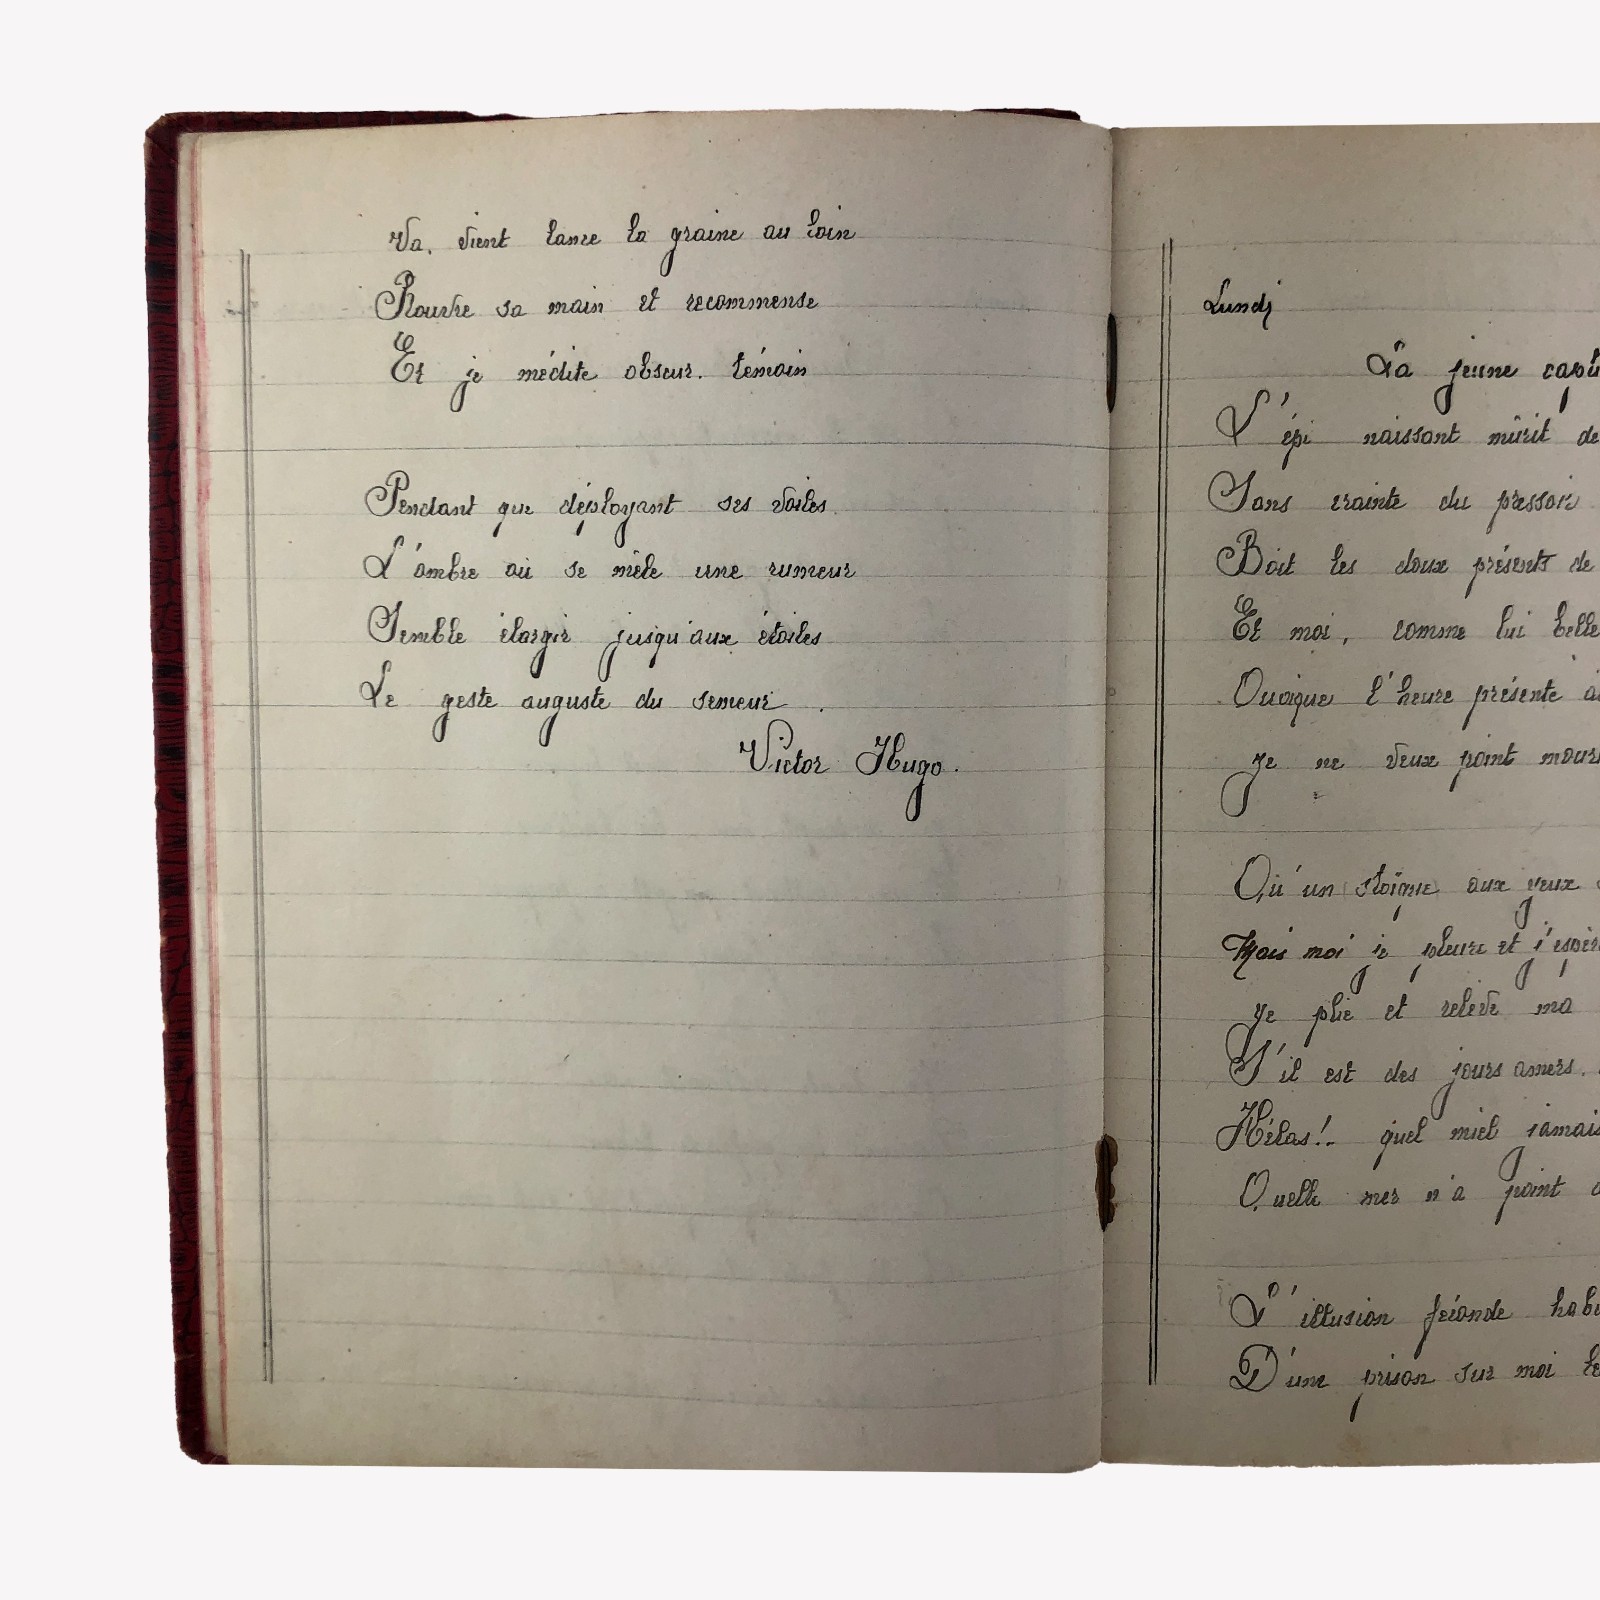 Va, vient lance la graine au loin
Rouvre sa main et recommense
Et je médite obscur. témoin
Pendant que déployant ses voiles
L'ombre où se mêle une rumeur
Semble élargir jusqu'aux étoiles
Le geste auguste du semeur.
Victor Hugo.
Lundi
La jeune capti
L'épi naissant mûrit de
Sans crainte du pressoir
Boit les doux présents de
Et moi, comme lui belle
Quoique l'heure présente
Je ne veux point mouri
Qu'un stoïque aux yeux
Mais moi je pleure et j'espère
Je plie et relève ma
S'il est des jours amers.
Hélas!.. quel miel jamais
Quelle mer n'a point
L'illusion féconde habi
D'une prison sur moi le